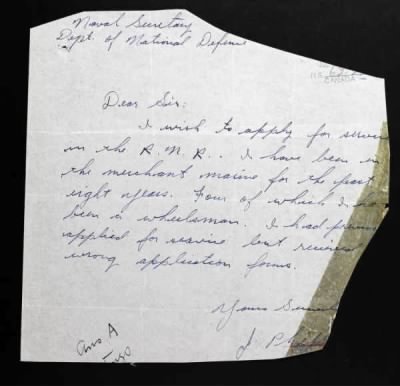 Naval Secretary
Dept. of National Defense
CANADA
Dear Sir:
I wish to apply for
in the R.M.R.. I have been in
the merchant maine for the past
eight years. Four of which I
been a wheelsman. I had
applied for service but received
wrong application forms.
Yours
J. P
Ans A